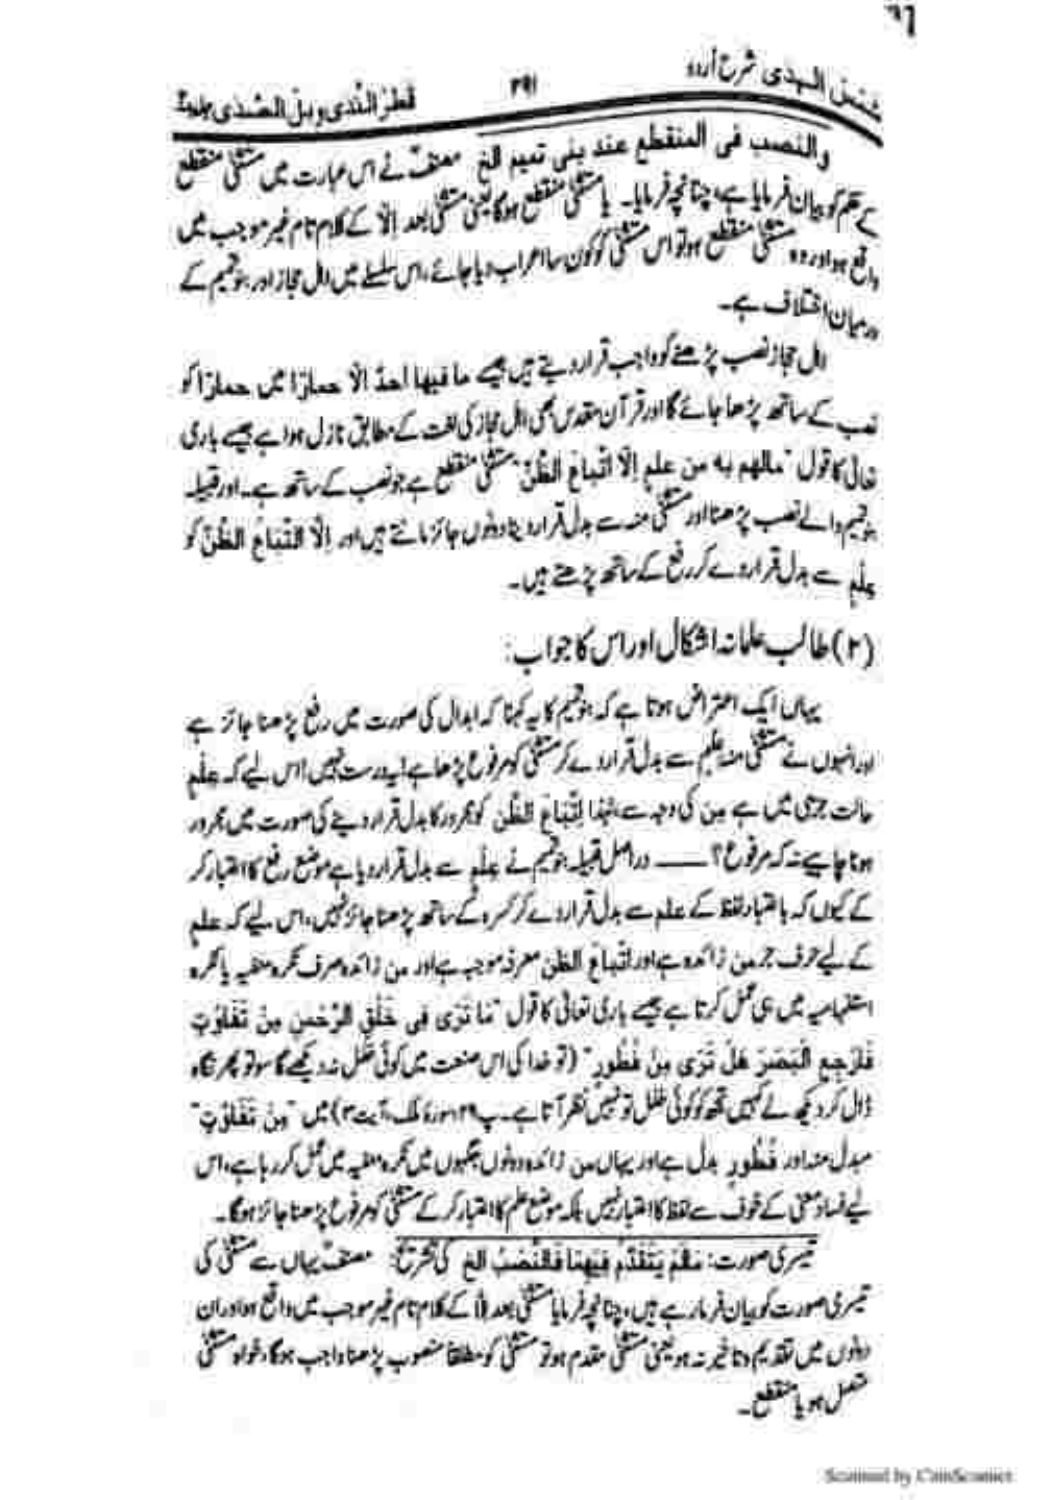 شمس الہدی شرح اردو
۳۹۱
قطر الندی وبل الصدی جلد
والنصب فی المنقطع عند بنی تمیم الخ مصنفؒ نے اس عبارت میں مستثنٰی منقطع
کے حکم کو بیان فرمایا ہے، چنانچہ فرمایا۔ یا مستثنٰی منقطع ہوگا یعنی مستثنٰی بعد إلّا کے کلام تام غیر موجب میں
واقع ہو اور وہ مستثنٰی منقطع ہو تو اس مستثنٰی کو کون سا اعراب دیا جائے، اس سلسلے میں اہل حجاز اور بنو تمیم کے
درمیان اختلاف ہے۔
اہل حجاز نصب پڑھنے کو واجب قرار دیتے ہیں جیسے ما فیها احدٌ الّا حمارًا میں حمارًا کو
نصب کے ساتھ پڑھا جائے گا اور قرآن مقدس بھی اہل حجاز کی لغت کے مطابق نازل ہوا ہے جیسے باری
تعالٰی کا قول "مالهم به من علمٍ إلّا اتّباعَ الظنّ" مستثنٰی منقطع ہے جو نصب کے ساتھ ہے۔ اور قبیلہ
بنو تمیم والے نصب پڑھنا اور مستثنٰی منہ سے بدل قرار دینا دونوں جائز مانتے ہیں اور إلّا اتّباعُ الظنّ کو
علمٍ سے بدل قرار دے کر رفع کے ساتھ پڑھتے ہیں۔
(۲) طالب علمانہ اشکال اور اس کا جواب:
یہاں ایک اعتراض ہوتا ہے کہ بنو تمیم کا یہ کہنا کہ ابدال کی صورت میں رفع پڑھنا جائز ہے
اور انہوں نے مستثنٰی منہ علم سے بدل قرار دے کر مستثنٰی کو مرفوع پڑھا ہے یہ درست نہیں! اس لیے کہ علمٍ
حالت جرّی میں ہے من کی وجہ سے، لہٰذا اتّباع الظن کو مجرور کا بدل قرار دینے کی صورت میں مجرور
ہونا چاہیے نہ کہ مرفوع؟ —— در اصل قبیلہ بنو تمیم نے علمٍ سے بدل قرار دیا ہے موضع رفع کا اعتبار کر
کے کیوں کہ باعتبار لفظ کے علم سے بدل قرار دے کر کسرہ کے ساتھ پڑھنا جائز نہیں، اس لیے کہ علم
کے لیے حرف جر من زائدہ ہے اور اتباع الظن معرفہ موجبہ ہے اور من زائدہ صرف نکرہ منفیہ یا نکرہ
استفہامیہ میں ہی عمل کرتا ہے جیسے باری تعالٰی کا قول "مَا تَرٰی فِی خَلْقِ الرَّحْمٰنِ مِنْ تَفٰوُتٍ
فَارْجِعِ الْبَصَرَ هَلْ تَرٰی مِنْ فُطُورٍ" (تو خدا کی اس صنعت میں کوئی خلل نہ دیکھے گا سو تو پھر نگاہ
ڈال کر دیکھ لے کہیں تجھ کو کوئی خلل تو نہیں نظر آتا ہے۔ پ۲۹، سورۂ ملک، آیت ۳) میں "مِنْ تَفٰوُتٍ"
مبدل منہ اور فُطُورٍ بدل ہے اور یہاں من زائدہ دونوں جگہوں میں نکرہ منفیہ میں عمل کر رہا ہے، اس
لیے فساد معنی کے خوف سے لفظ کا اعتبار نہیں بلکہ موضع علم کا اعتبار کر کے مستثنٰی کو مرفوع پڑھنا جائز ہوگا۔
تیسری صورت: مَالَمْ يَتَقَدَّمْ فِيهِمَا فَالنَّصْبُ الخ کی تشریح: مصنفؒ یہاں سے مستثنٰی کی
تیسری صورت کو بیان فرما رہے ہیں، چنانچہ فرمایا مستثنٰی بعد إلّا کے کلام تام غیر موجب میں واقع ہو اور ان
دونوں میں تقدیم و تاخیر نہ ہو یعنی مستثنٰی مقدم ہو تو مستثنٰی کو مطلقا منصوب پڑھنا واجب ہوگا، خواہ مستثنٰی
متصل ہو یا منقطع۔
Scanned by CamScanner